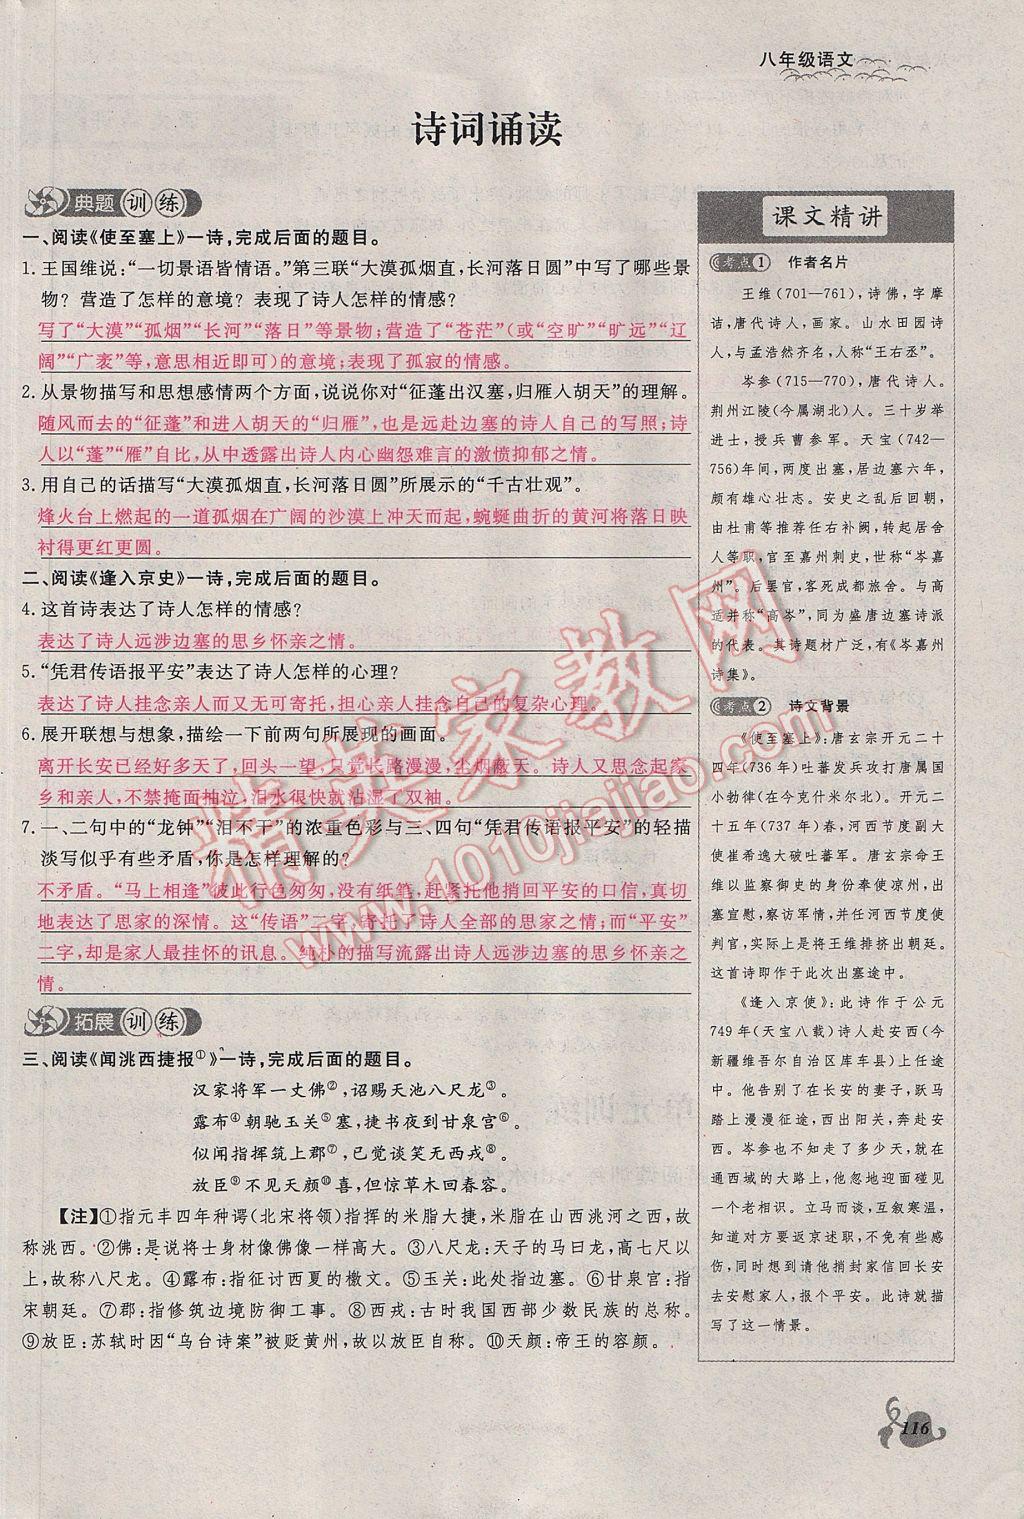 八年级语文
诗词诵读
典题训练
一、阅读《使至塞上》一诗,完成后面的题目。
1. 王国维说:“一切景语皆情语。”第三联“大漠孤烟直,长河落日圆”中写了哪些景
物? 营造了怎样的意境? 表现了诗人怎样的情感?
写了“大漠”“孤烟”“长河”“落日”等景物;营造了“苍茫”(或“空旷”“旷远”“辽
阔”“广袤”等,意思相近即可)的意境;表现了孤寂的情感。
2. 从景物描写和思想感情两个方面,说说你对“征蓬出汉塞,归雁入胡天”的理解。
随风而去的“征蓬”和进入胡天的“归雁”,也是远赴边塞的诗人自己的写照;诗
人以“蓬”“雁”自比,从中透露出诗人内心幽怨难言的激愤抑郁之情。
3. 用自己的话描写“大漠孤烟直,长河落日圆”所展示的“千古壮观”。
烽火台上燃起的一道孤烟在广阔的沙漠上冲天而起,蜿蜒曲折的黄河将落日映
衬得更红更圆。
二、阅读《逢入京史》一诗,完成后面的题目。
4. 这首诗表达了诗人怎样的情感?
表达了诗人远涉边塞的思乡怀亲之情。
5. “凭君传语报平安”表达了诗人怎样的心理?
表达了诗人挂念亲人而又无可寄托,担心亲人挂念自己的复杂心理。
6. 展开联想与想象,描绘一下前两句所展现的画面。
离开长安已经好多天了,回头一望,只觉长路漫漫,尘烟蔽天。诗人又思念起家
乡和亲人,不禁掩面抽泣,泪水很快就沾湿了双袖。
7. 一、二句中的“龙钟”“泪不干”的浓重色彩与三、四句“凭君传语报平安”的轻描
淡写似乎有些矛盾,你是怎样理解的?
不矛盾。“马上相逢”彼此行色匆匆,没有纸笔,赶紧托他捎回平安的口信,真切
地表达了思家的深情。这“传语”二字,寄托了诗人全部的思家之情;而“平安”
二字,却是家人最挂怀的讯息。纯朴的描写流露出诗人远涉边塞的思乡怀亲之
情。
拓展训练
三、阅读《闻洮西捷报①》一诗,完成后面的题目。
汉家将军一丈佛②,诏赐天池八尺龙③。
露布④朝驰玉关⑤塞,捷书夜到甘泉宫⑥。
似闻指挥筑上郡⑦,已觉谈笑无西戎⑧。
放臣⑨不见天颜⑩喜,但惊草木回春容。
【注】①指元丰四年种谔(北宋将领)指挥的米脂大捷,米脂在山西洮河之西,故
称洮西。②佛:是说将士身材像佛像一样高大。③八尺龙:天子的马曰龙,高七尺以
上,故称八尺龙。④露布:指征讨西夏的檄文。⑤玉关:此处指边塞。⑥甘泉宫:指
宋朝廷。⑦郡:指修筑边境防御工事。⑧西戎:古时我国西部少数民族的总称。
⑨放臣:苏轼时因“乌台诗案”被贬黄州,故以放臣自称。⑩天颜:帝王的容颜。
课文精讲
考点1 作者名片
王维(701—761),诗佛,字摩
诘,唐代诗人,画家。山水田园诗
人,与孟浩然齐名,人称“王右丞”。
岑参(715—770),唐代诗人。
荆州江陵(今属湖北)人。三十岁举
进士,授兵曹参军。天宝(742—
756)年间,两度出塞,居边塞六年,
颇有雄心壮志。安史之乱后回朝,
由杜甫等推荐任右补阙,转起居舍
人等职,官至嘉州刺史,世称“岑嘉
州”。后罢官,客死成都旅舍。与高
适并称“高岑”,同为盛唐边塞诗派
的代表。其诗题材广泛,有《岑嘉州
诗集》。
考点2 诗文背景
《使至塞上》:唐玄宗开元二十
四年(736年)吐蕃发兵攻打唐属国
小勃律(在今克什米尔北)。开元二
十五年(737年)春,河西节度副大
使崔希逸大破吐蕃军。唐玄宗命王
维以监察御史的身份奉使凉州,出
塞宣慰,察访军情,并任河西节度使
判官,实际上是将王维排挤出朝廷。
这首诗即作于此次出塞途中。
《逢入京使》:此诗作于公元
749年(天宝八载)诗人赴安西(今
新疆维吾尔自治区库车县)上任途
中。他告别了在长安的妻子,跃马
踏上漫漫征途,西出阳关,奔赴安
西。岑参也不知走了多少天,就在
通西域的大路上,他忽地迎面碰见
一个老相识。立马而谈,互叙寒温,
知道对方要返京述职,不免有些感
伤,同时想到请他捎封家信回长安
去安慰家人,报个平安。此诗就描
写了这一情景。
116
精英家教网
www.1010jiajiao.com